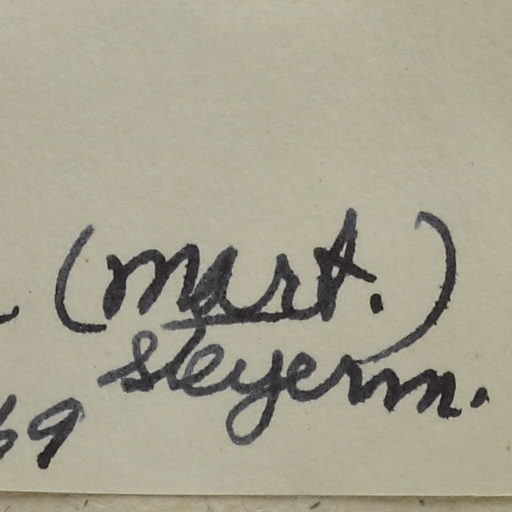 (Mart.)
Steyerm.
69